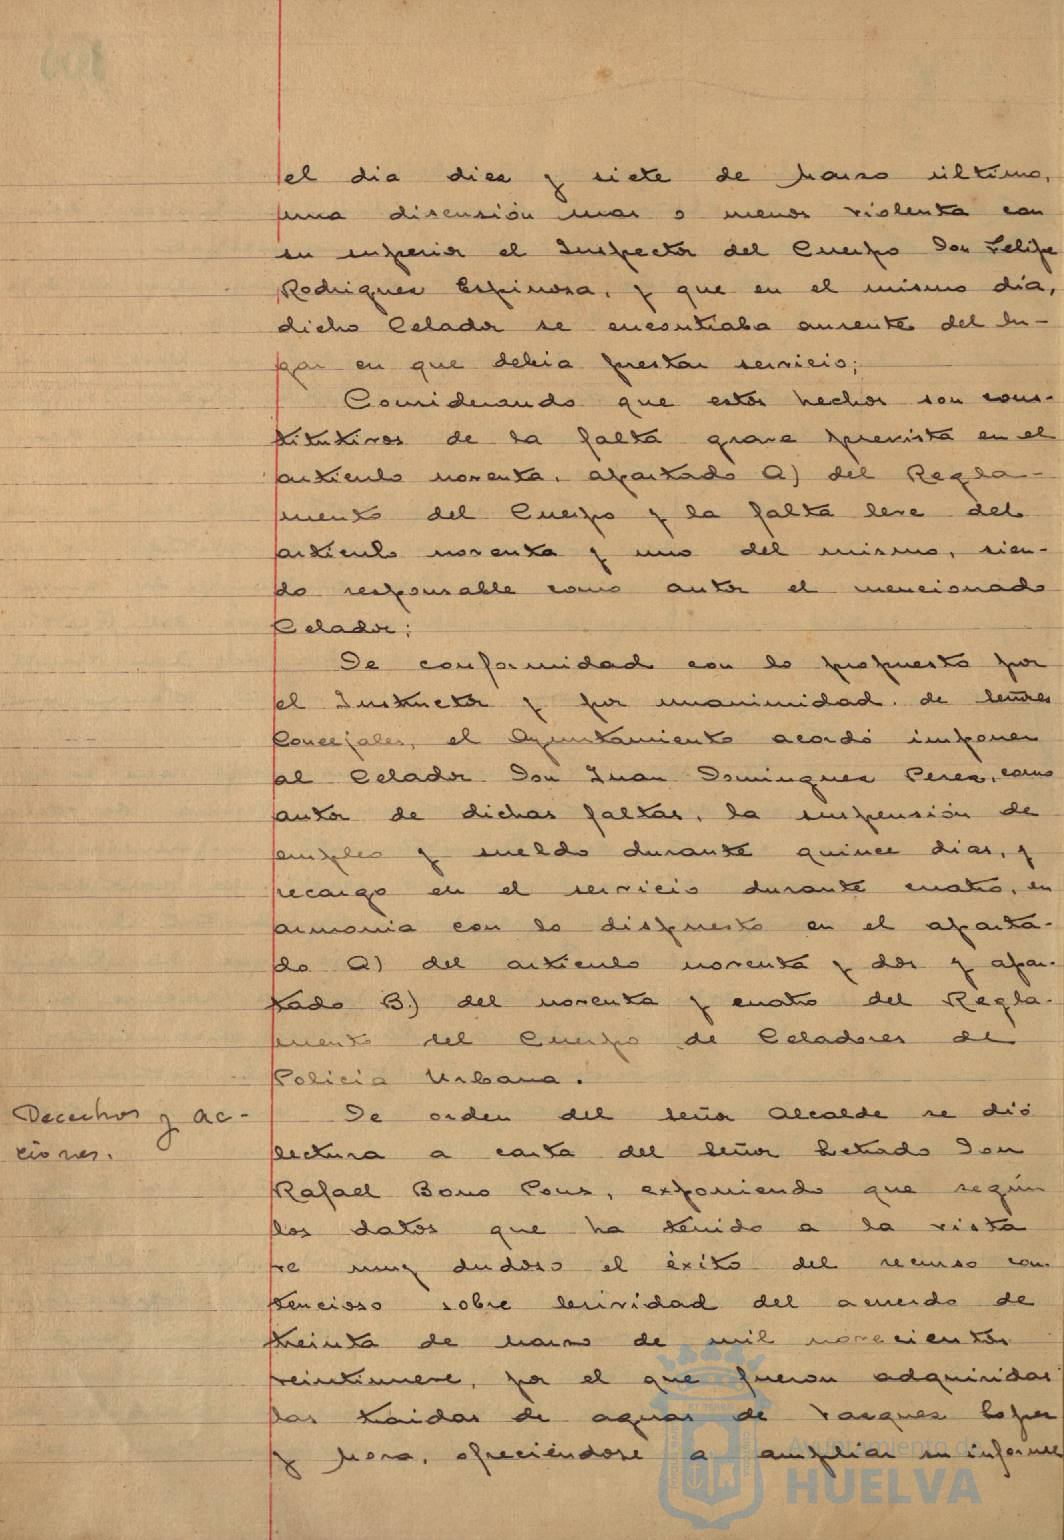 el dia diez y siete de Marzo último,
una discusión mas o menos violenta con
su superior el Inspector del Cuerpo Don Felipe
Rodriguez Espinosa, y que en el mismo dia,
dicho Celador se encontraba ausente del lu-
gar en que debia prestar servicio;
Considerando que estos hechos son cons-
titutivos de la falta grave prevista en el
articulo noventa, apartado A) del Regla-
mento del Cuerpo y la falta leve del
articulo noventa y uno del mismo, sien-
do responsable como autor el mencionado
Celador;
De conformidad con lo propuesto por
el Instructor y por unanimidad de señores
Concejales, el Ayuntamiento acordó imponer
al Celador Don Juan Dominguez Perez, como
autor de dichas faltas, la suspensión de
empleo y sueldo durante quince dias, y
recargo en el servicio durante cuatro, en
armonia con lo dispuesto en el aparta-
do A) del articulo noventa y dos y apar-
tado B.) del noventa y cuatro del Regla-
mento del Cuerpo de Celadores de
Policia Urbana.
Derechos y ac-
ciones.
De orden del señor Alcalde se dió
lectura a carta del señor Letrado Don
Rafael Bono Pons, exponiendo que según
los datos que ha tenido a la vista
ve muy dudoso el éxito del recurso con-
tencioso sobre lesividad del acuerdo de
treinta de marzo de mil novecientos
veintinueve, por el que fueron adquiridas
las traidas de aguas de Vazquez Lopez
y Mora, ofreciéndose a ampliar su informe
Ayuntamiento de
HUELVA